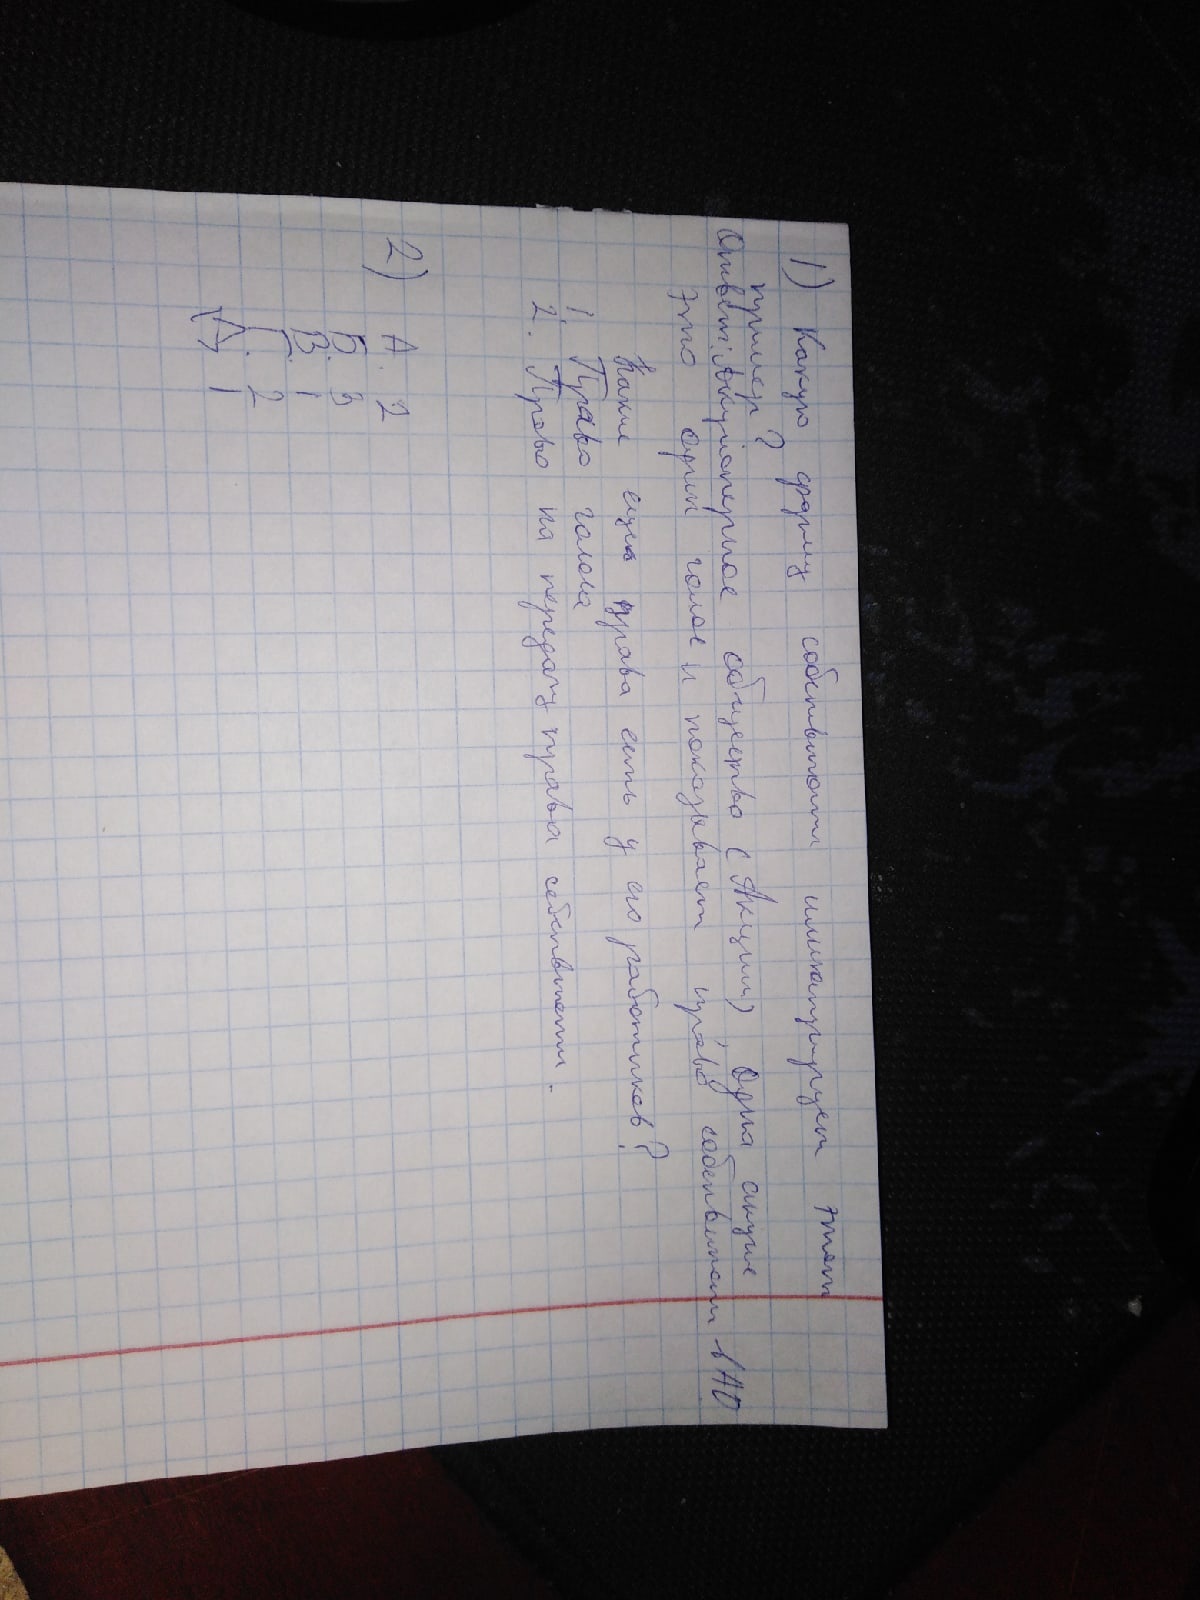 1) Какую форму собственности иллюстрирует этот
пример?
Ответ: Акционерное общество (Акции), Одна акция
это один голос и показывает право собственности в АО
Какие еще права есть у его работников?
1. Право голоса
2. Право на передачу права собственности.
2) А. 2
Б. 3
В. 1
Г. 2
Д. 1